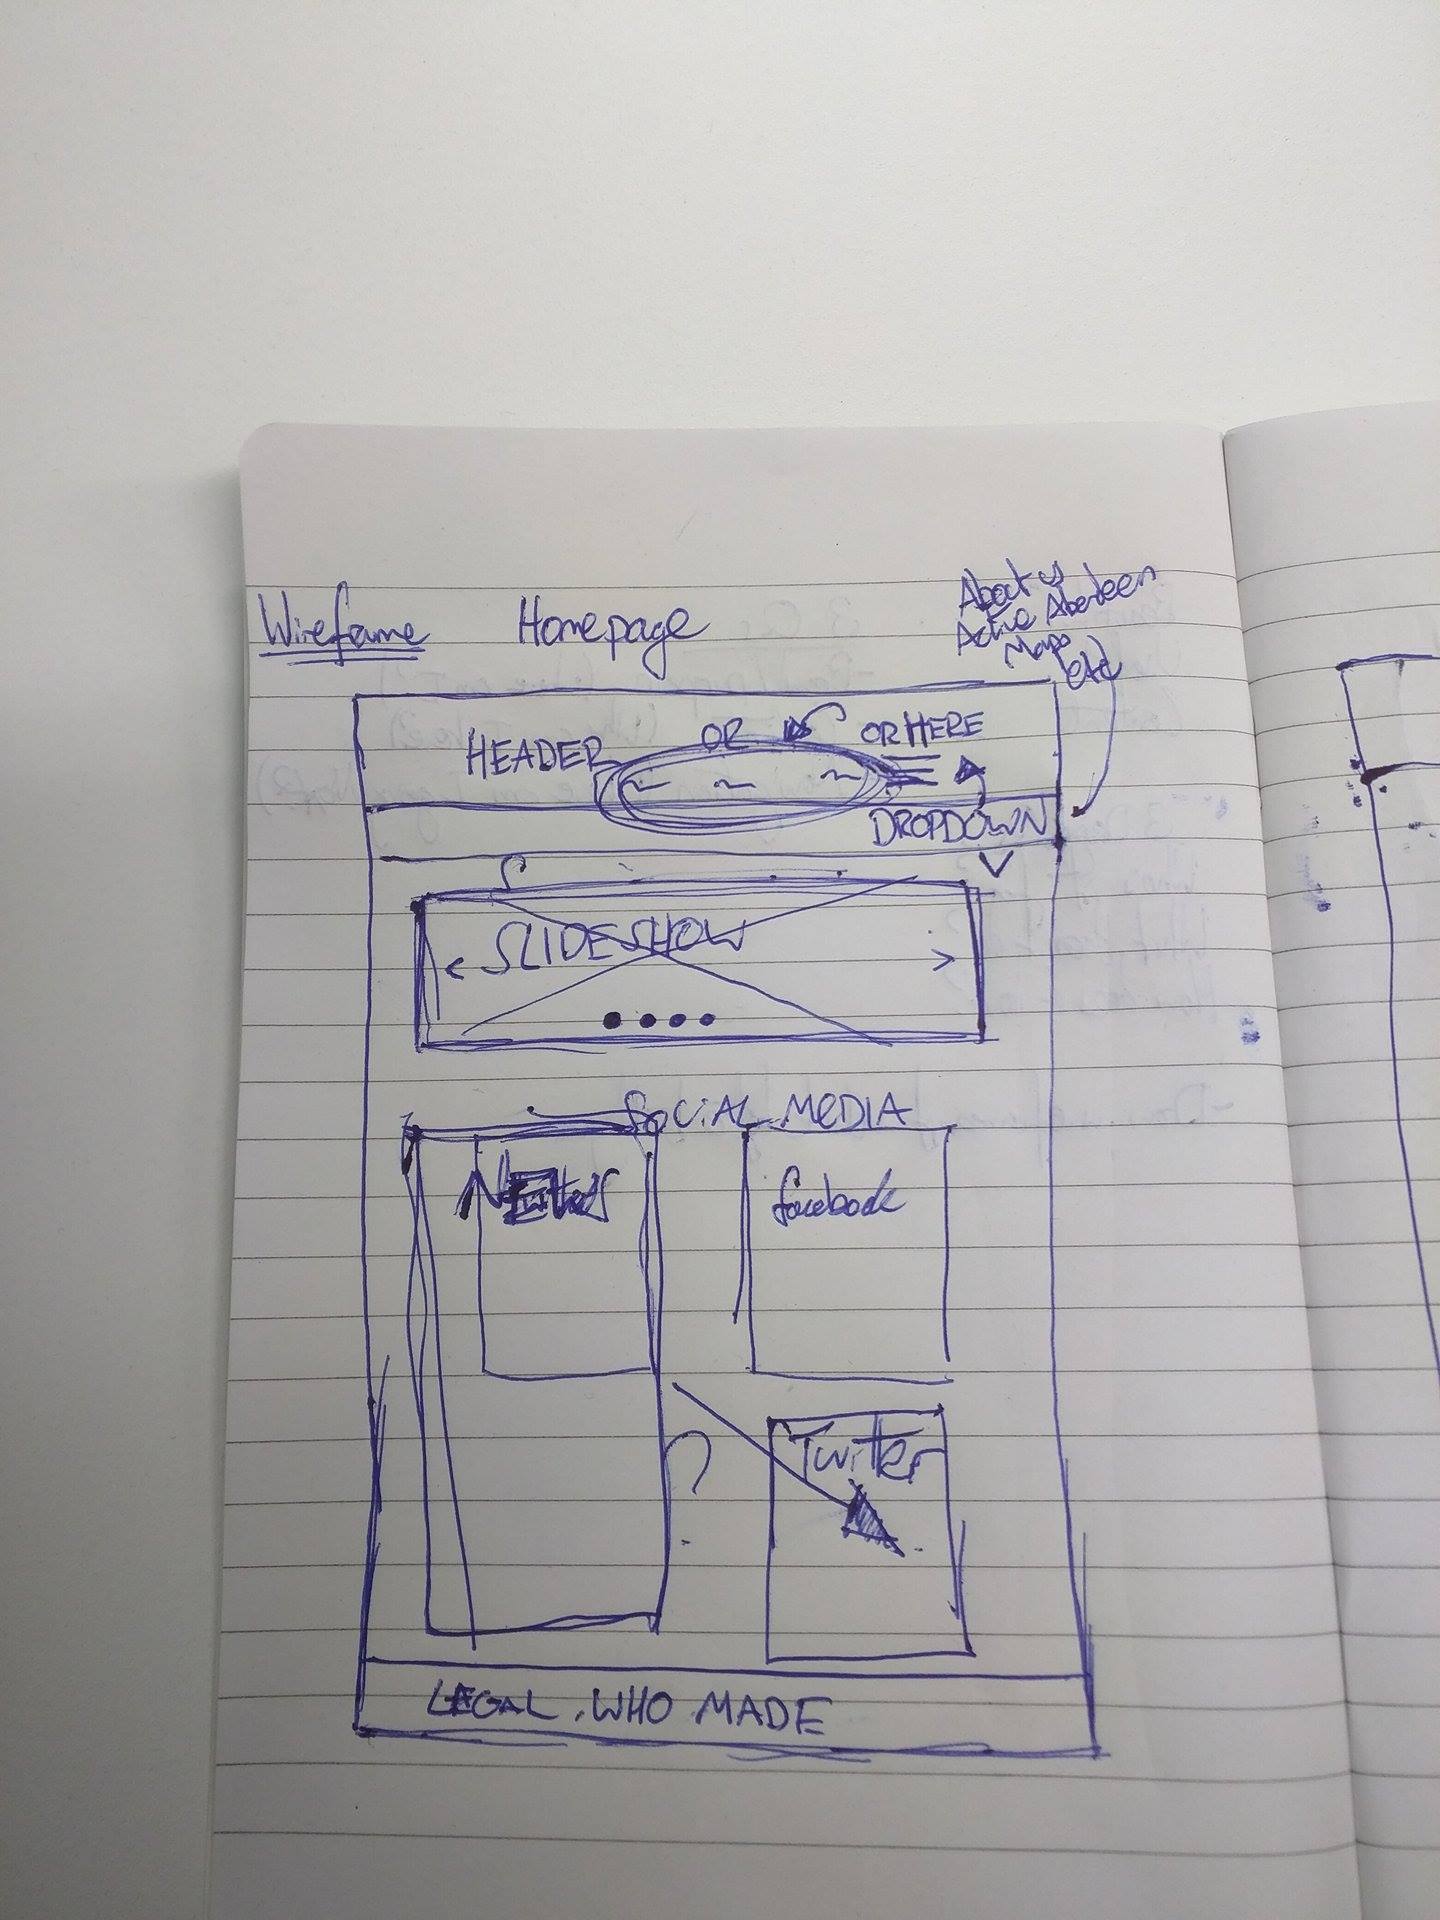 Wireframe Homepage
About us
Active Aberdeen
Maps
etc
HEADER OR OR HERE
DROPDOWN
< SLIDESHOW >
SOCIAL MEDIA
facebook
?
Twitter
LEGAL. WHO MADE